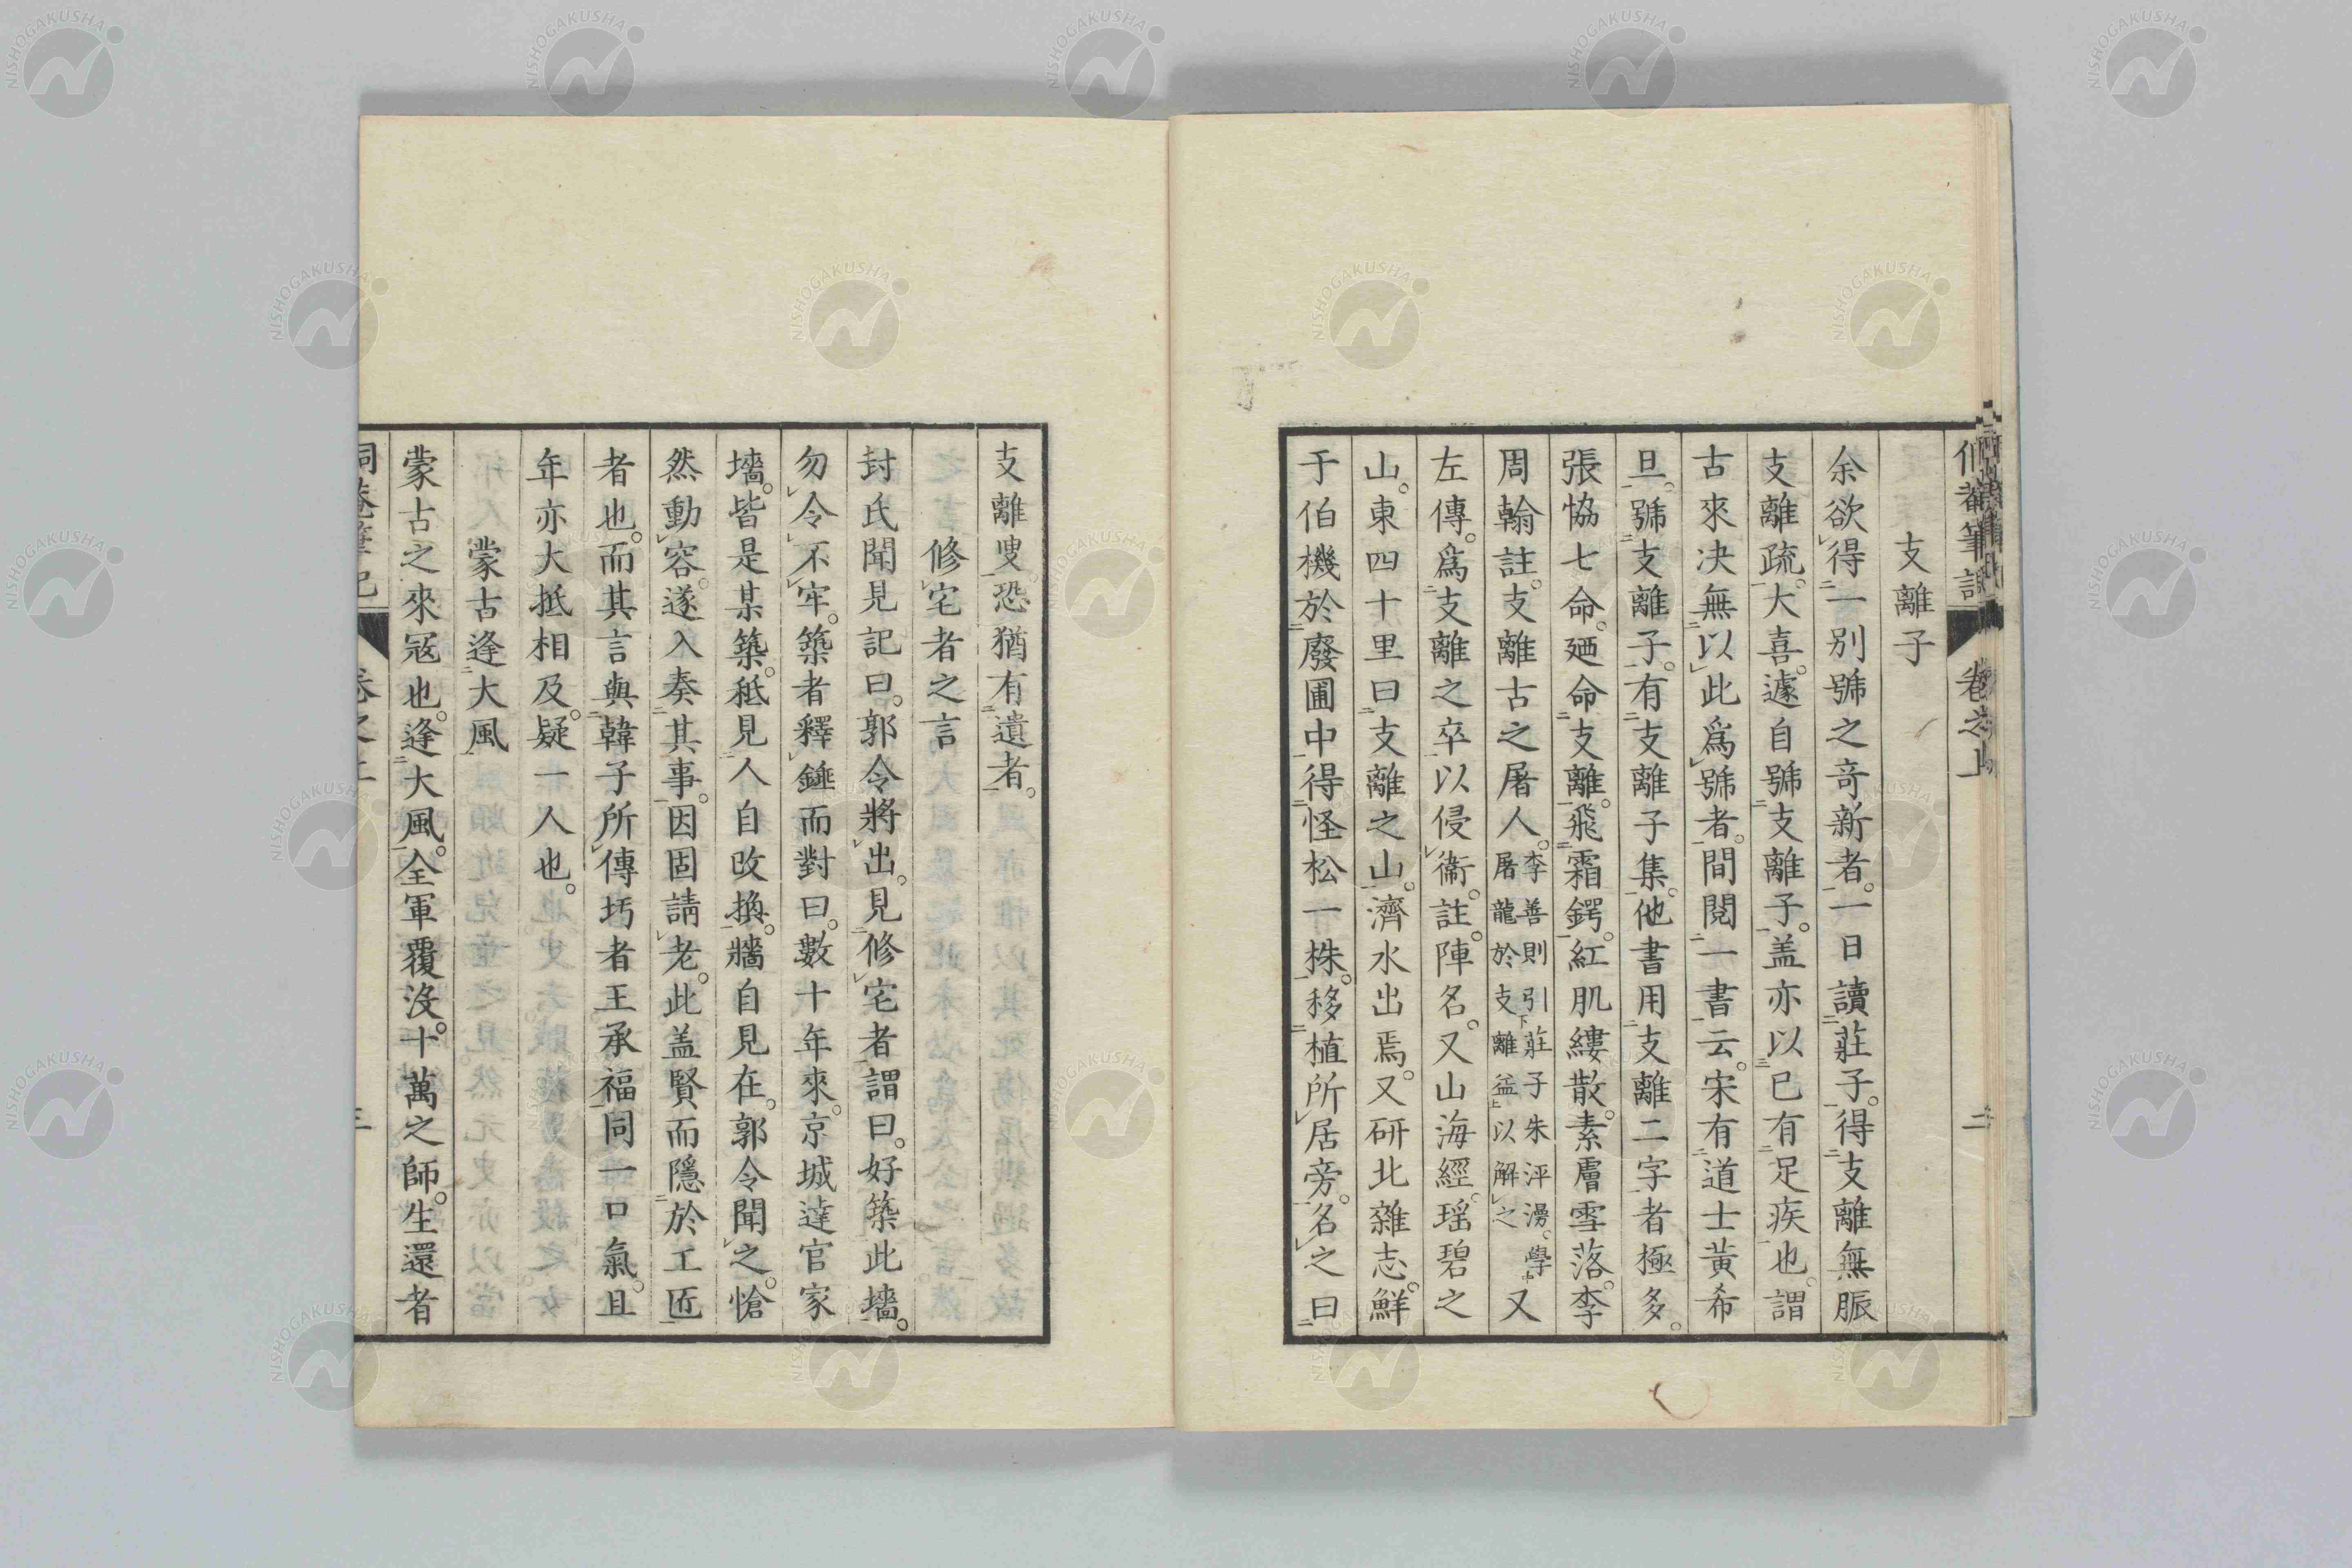 支離子
余欲得一別號之竒新者。一日讀莊子。得支離無脤
支離疏。大喜。遽自號支離子。盖亦以已有足疾也。謂
古來决無以此爲號者。間閱一書云。宋有道士黃希
旦。號支離子。有支離子集。他書用支離二字者極多。
張恊七命。廼命支離。飛霜鍔。紅肌縷散。素膚雪落。李
周翰註。支離古之屠人。李善則引莊子朱泙漫。學屠龍於支離益以解之又
左傳。爲支離之卒以侵衞。註。陣名。又山海經。瑶碧之
山。東四十里曰支離之山。濟水出焉。又研北雜志。鮮
于伯機於廢圃中得怪松一株。移植所居旁。名之曰
支離叟恐猶有遺者。
修宅者之言
封氏聞見記曰。郭令將出。見修宅者謂曰。好築此墻。
勿令不牢。築者釋錘而對曰。數十年來。京城達官家
墻。皆是某築。秪見人自改換。牆自見在。郭令聞之。愴
然動容。遂入奏其事。因固請老。此盖賢而隱於工匠
者也。而其言與韓子所傳圬者王承福同一口氣。且
年亦大抵相及。疑一人也。
蒙古逢大風
蒙古之來冦也。逢大風。全軍覆沒。十萬之師。生還者
NISHOGAKUSHA